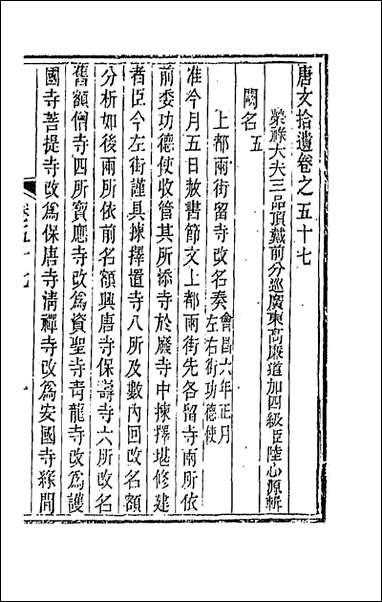 唐文拾遺卷之五十七
榮祿大夫三品頂戴前分巡廣東高廉道加四級臣陸心源輯
闕名五
上都兩街留寺改名奏會昌六年正月左右街功德使
准今月五日赦書節文上都兩街先各留寺兩所依
前委功德使收管其所添寺於廢寺中揀擇堪修建
者臣今左街謹具揀擇置寺八所及數內回改名額
分析如後兩所依前名額興唐寺保壽寺六所改名
舊額僧寺四所寶應寺改爲資聖寺青龍寺改爲護
國寺菩提寺改爲保唐寺清禪寺改爲安國寺緣間